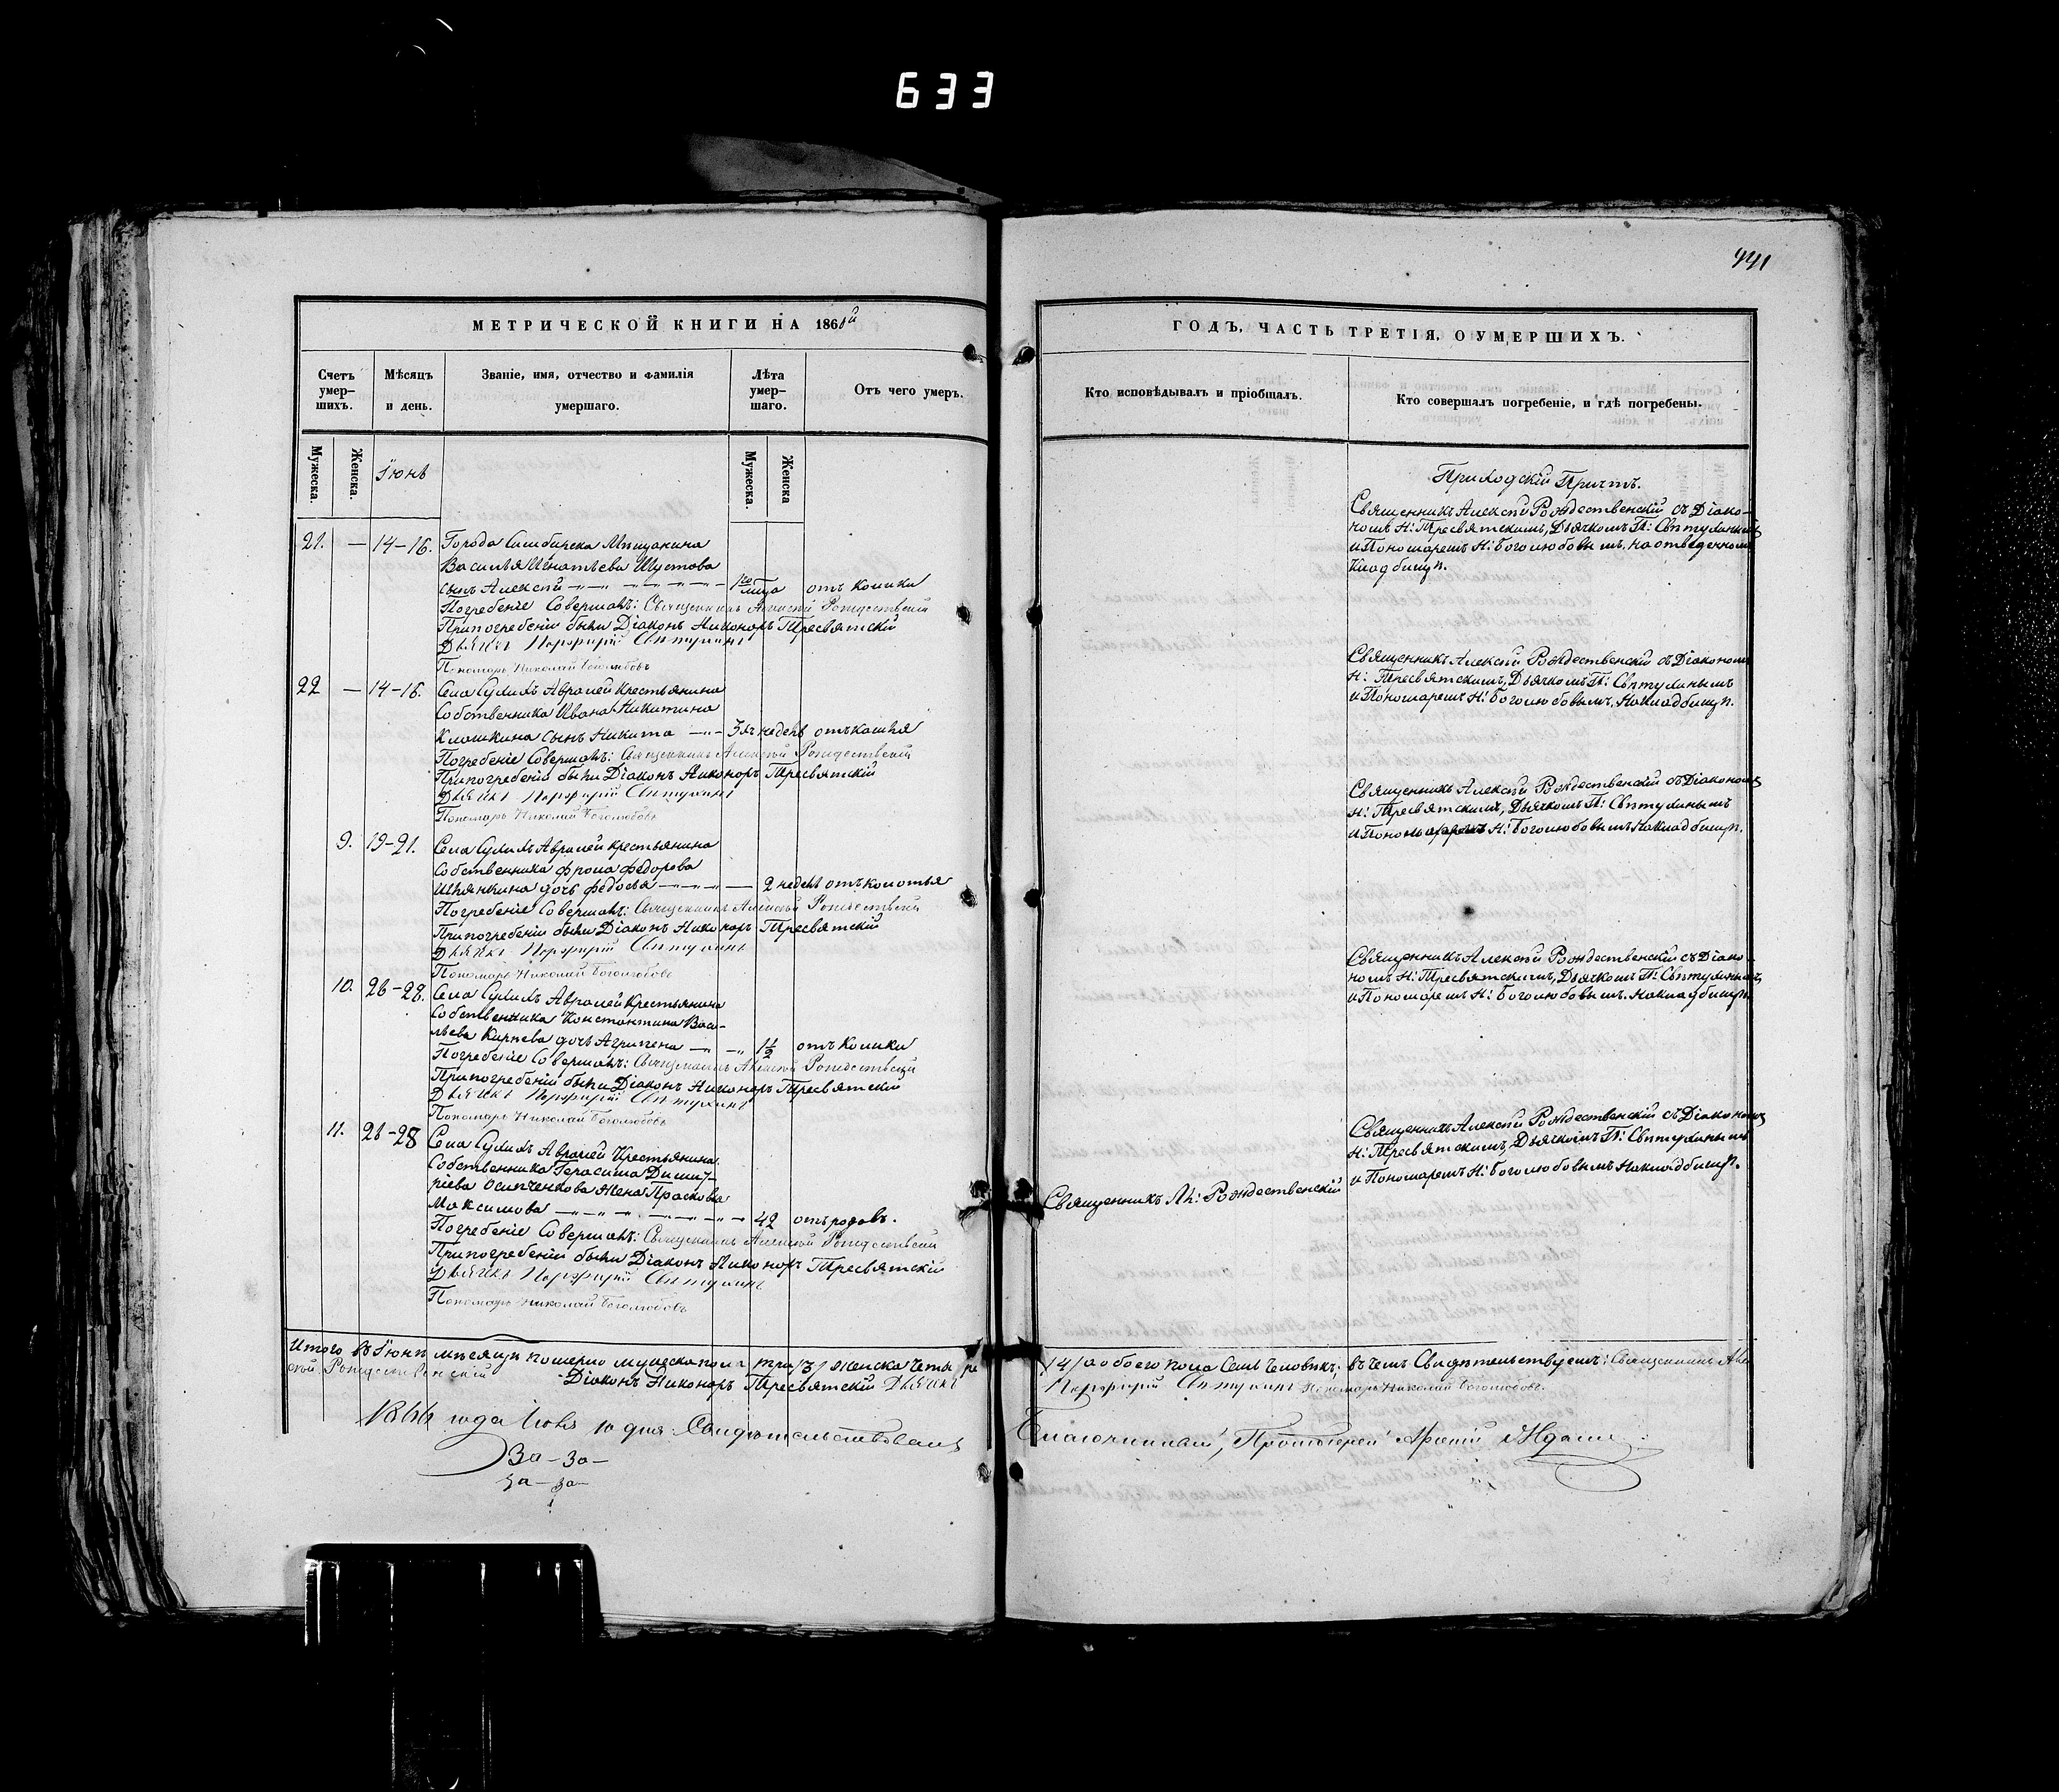 633
441
МЕТРИЧЕСКОЙ КНИГИ НА 1866й
ГОДЪ, ЧАСТЬ ТРЕТІЯ, О УМЕРШИХЪ.
Счетъ умер-шихъ.
Мѣсяцъ и день.
Званіе, имя, отчество и фамилія умершаго.
Лѣта умер-шаго.
Отъ чего умеръ.
Кто исповѣдывалъ и пріобщалъ.
Кто совершалъ погребеніе, и гдѣ погребены.
Мужеска.
Женска.
Іюнь
Мужеска.
Женска
Приходскій Причтъ.
21. — 14-16. Города Симбирска Мѣщанина
Василья Игнатьева Шустова
сынъ Алексѣй 1го отъ колики
Погребеніе Совершалъ: Священникъ Алексѣй Рождественскій
При погребеніи были Діаконъ Никоноръ Тресвятскій
Дьячекъ Порфирій Свѣтухинъ
Пономарь Николай Боголюбовъ
Священникъ Алексѣй Рождественскій съ Діако-
номъ Н: Тресвятскимъ, Дьячкомъ П:
и Пономаремъ Н: Боголюбовымъ, на отведенномъ
Кладбищѣ.
22 — 14-16. Села Авралей Крестьянина
Собственника Ивана Никитина
Клошкина сынъ Никита 3хъ недель отъ кашля
Погребеніе Совершалъ: Священникъ Алексѣй Рождественскій
При погребеніи были Діаконъ Никоноръ Тресвятскій
Дьячекъ Порфирій Свѣтухинъ
Пономарь Николай Боголюбовъ
Священникъ Алексѣй Рождественскій съ Діакономъ
Н: Тресвятскимъ, Дьячкомъ П:
и Пономаремъ Н: Боголюбовымъ, на Кладбищѣ.
9. 19-21. Села Авралей Крестьянина
Собственника Фрола Федорова
дочь Федосья 2 недель отъ колотья
Погребеніе Совершалъ: Священникъ Алексѣй Рождественскій
При погребеніи были Діаконъ Никоноръ Тресвятскій
Дьячекъ Порфирій Свѣтухинъ
Пономарь Николай Боголюбовъ
Священникъ Алексѣй Рождественскій съ Діакономъ
Н: Тресвятскимъ, Дьячкомъ П:
и Пономаремъ Н: Боголюбовымъ на Кладбищѣ.
10. 26-28. Села Авралей Крестьянина
Собственника Константина Васи-
льева дочь Агрипена 1½ отъ колики
Погребеніе Совершалъ: Священникъ Алексѣй Рождественскій
При погребеніи были Діаконъ Никоноръ Тресвятскій
Дьячекъ Порфирій Свѣтухинъ
Пономарь Николай Боголюбовъ
Священникъ Алексѣй Рождественскій съ Діако-
номъ Н: Тресвятскимъ, Дьячкомъ П:
и Пономаремъ Н: Боголюбовымъ. на Кладбищѣ.
11. 26-28 Села Авралей Крестьянина
Собственника Герасима Димит-
ріева Осипченкова жена Прасковья
Максимова 42 отъ родовъ.
Погребеніе Совершалъ: Священникъ Алексѣй Рождественскій
При погребеніи были Діаконъ Никоноръ Тресвятскій
Дьячекъ Порфирій Свѣтухинъ
Пономарь Николай Боголюбовъ
Священникъ Ал: Рождественскій
Священникъ Алексѣй Рождественскій съ Діакономъ
Н: Тресвятскимъ, Дьячкомъ П:
и Пономаремъ Н: Боголюбовымъ на Кладбищѣ.
Итого въ Іюнѣ мѣсяцѣ померло мужеска пола три /3/ женска четыре /4/ а обоего пола Семь человѣкъ; въ чемъ Свидѣтельствуемъ: Священникъ Але
ксѣй Рождественскій Діаконъ Никоноръ Тресвятскій Дьячекъ Порфирій Свѣтухинъ Пономарь Николай Боголюбовъ.
1866 года Іюля 10 дня Свидѣтельствовалъ Благочинный, Протоіерей